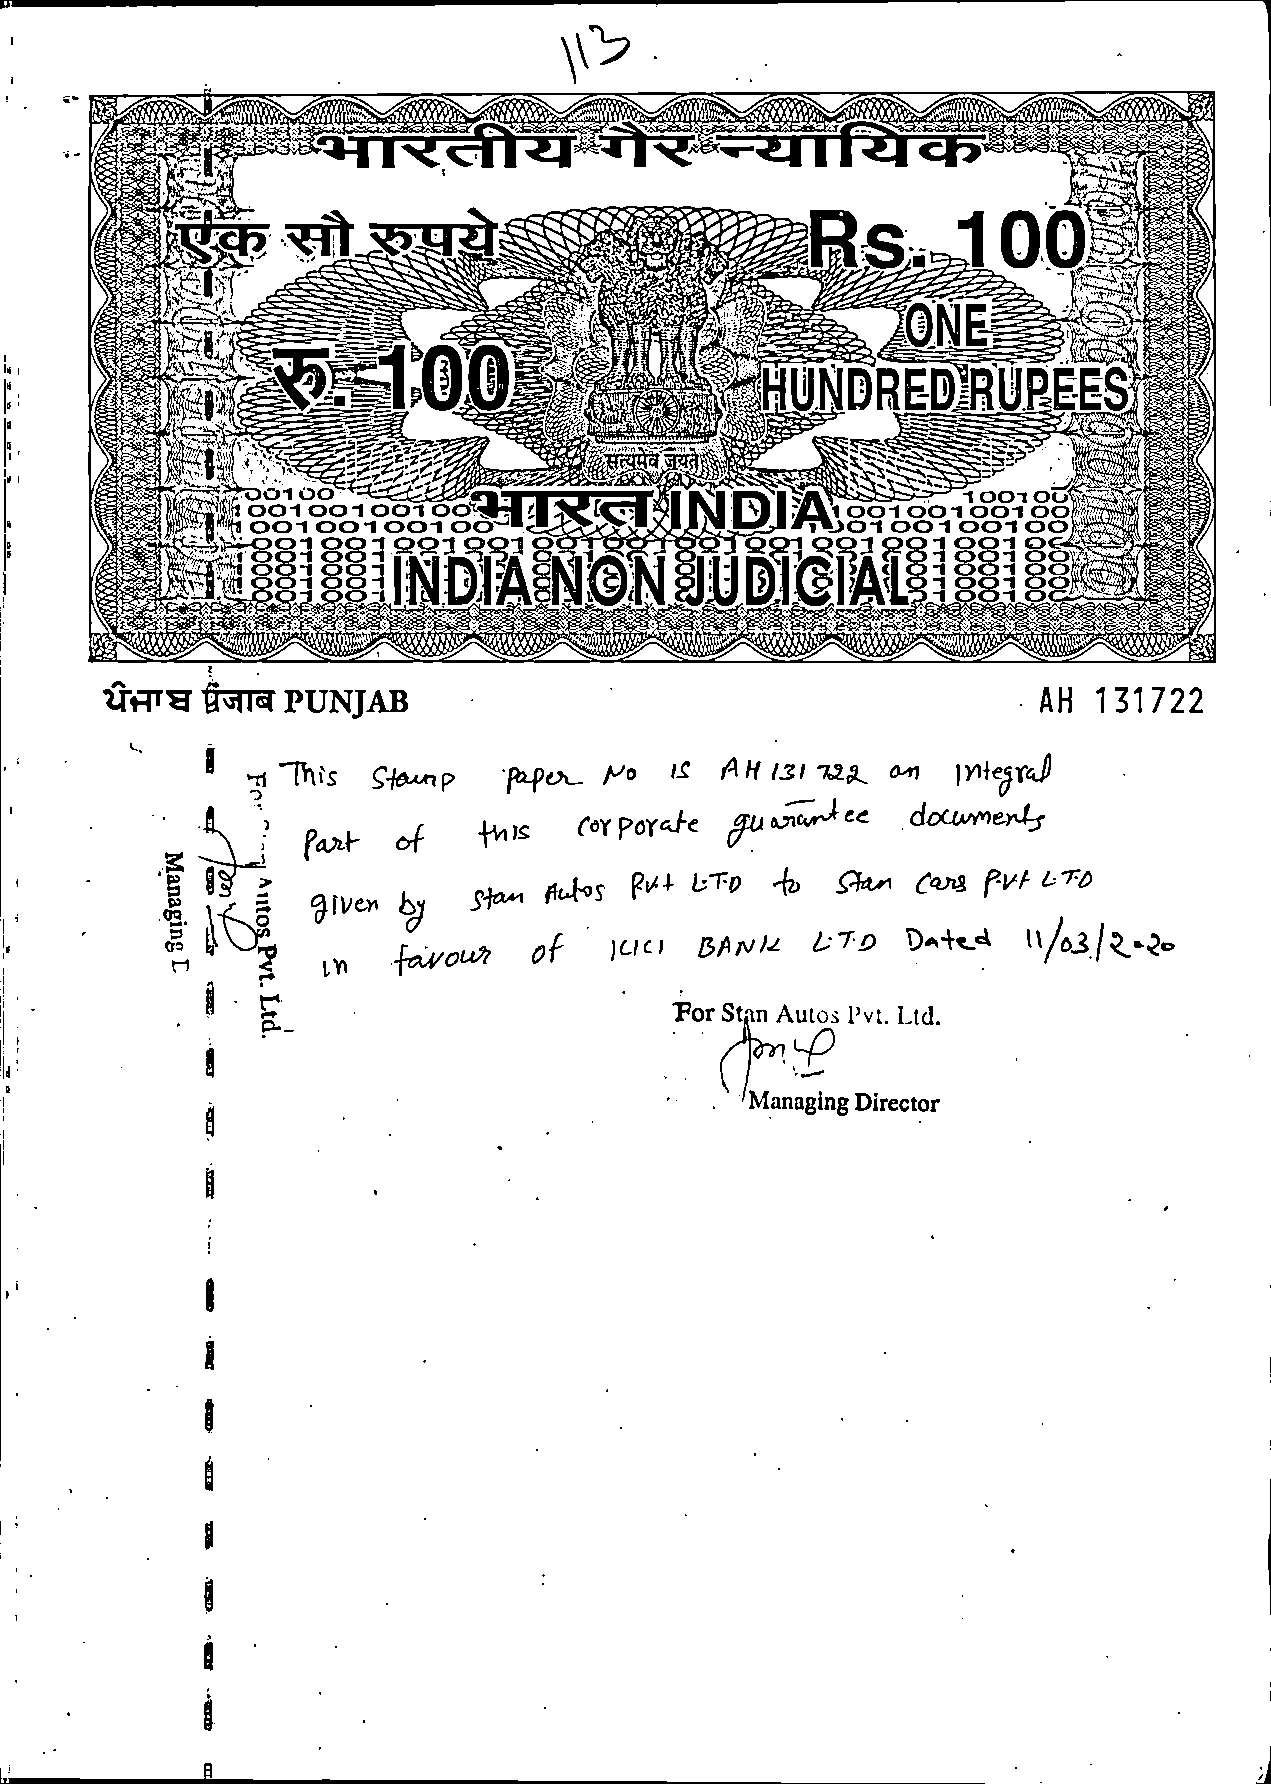 113
भारतीय गैर न्यायिक
एक सौ रुपये
Rs. 100
रु. 100
ONE
HUNDRED RUPEES
सत्यमेव जयते
भारत INDIA
INDIA NON JUDICIAL
ਪੰਜਾਬ पंजाब PUNJAB
AH 131722
This Stamp paper No is AH 131722 an integral
Part of this corporate guarantee documents
given by Stan Autos Pvt LTD to Stan Cars Pvt LTD
in favour of ICICI BANK LTD Dated 11/03/2020
For Stan Autos Pvt. Ltd.
Managing Director
Autos Pvt. Ltd.
Managing D